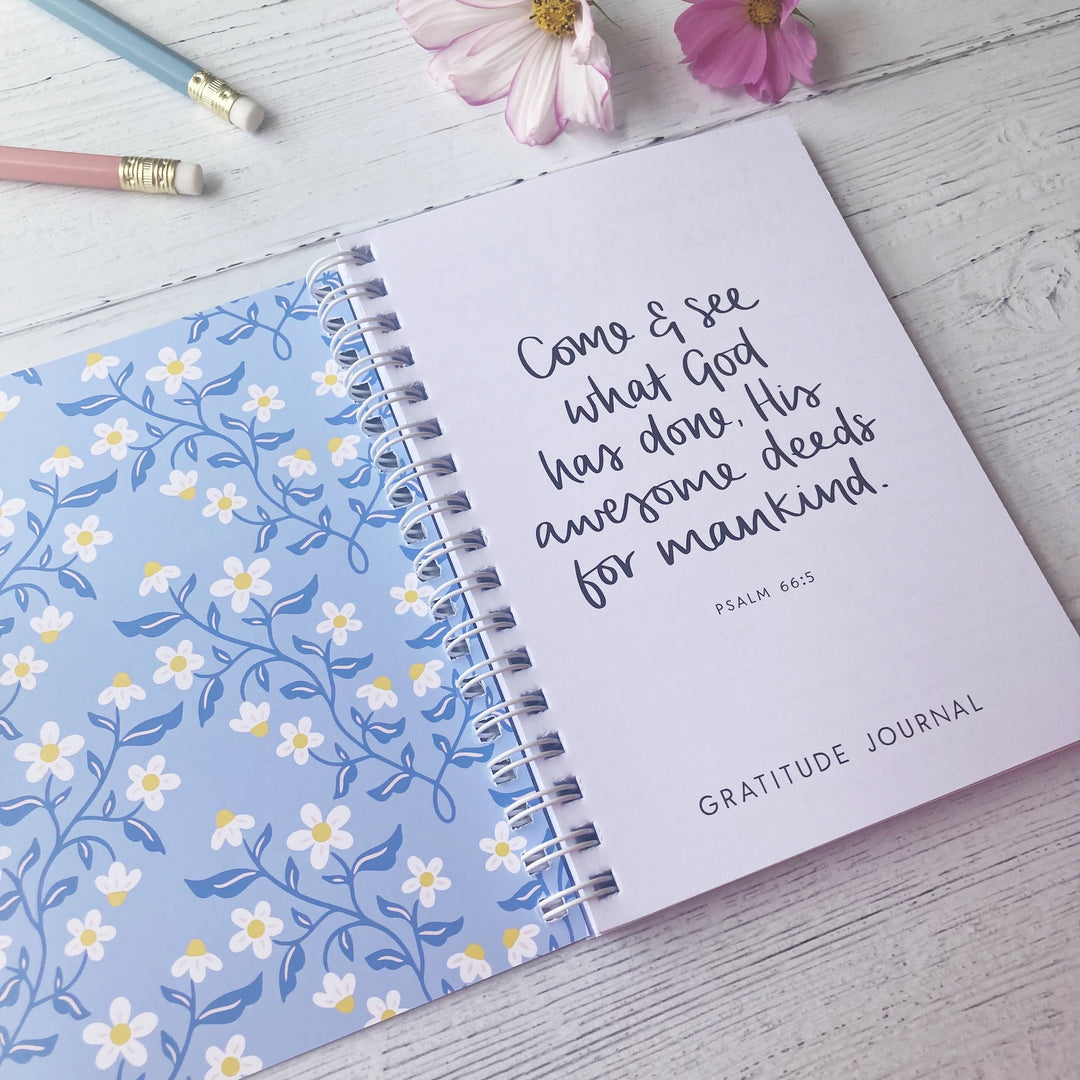 Come & see
what God
has done, His
awesome deeds
for mankind.
PSALM 66:5
GRATITUDE JOURNAL